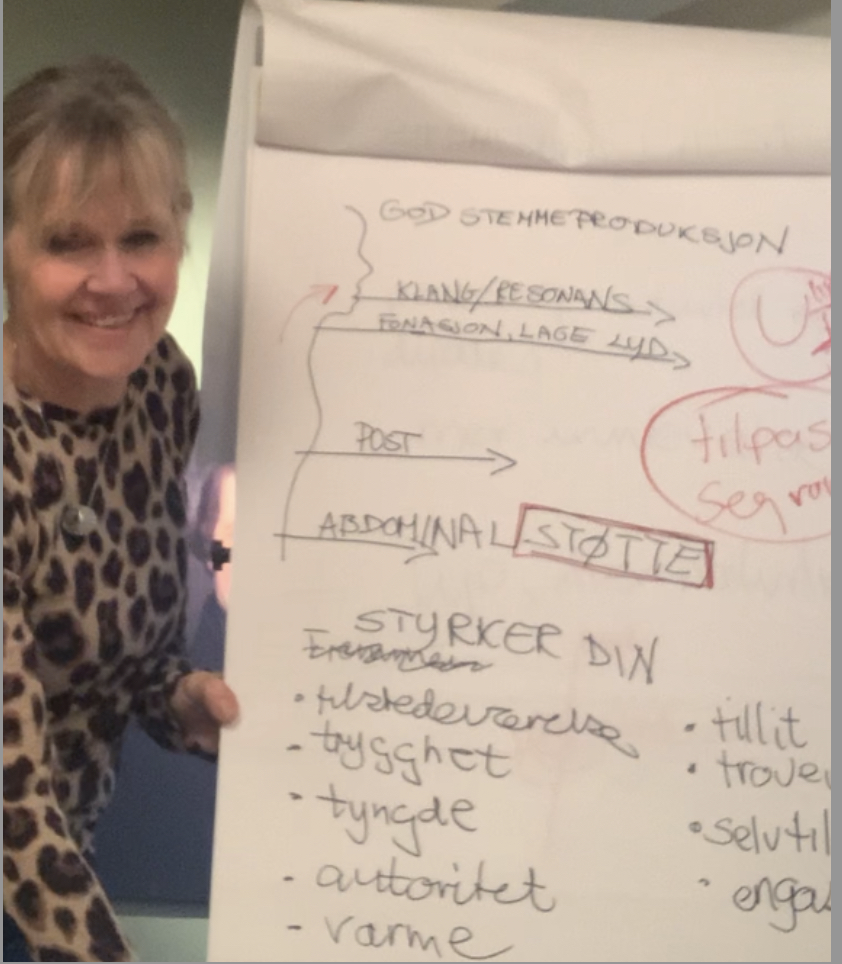 GOD STEMMEPRODUKSJON
KLANG/RESONANS
FONASJON, LAGE LYD
POST
ABDOMINAL STØTTE
tilpas
seg
STYRKER DIN
• tilstedeværelse
- trygghet
- tyngde
- autoritet
- varme
• tillit
• trove
• selvtil
• enga